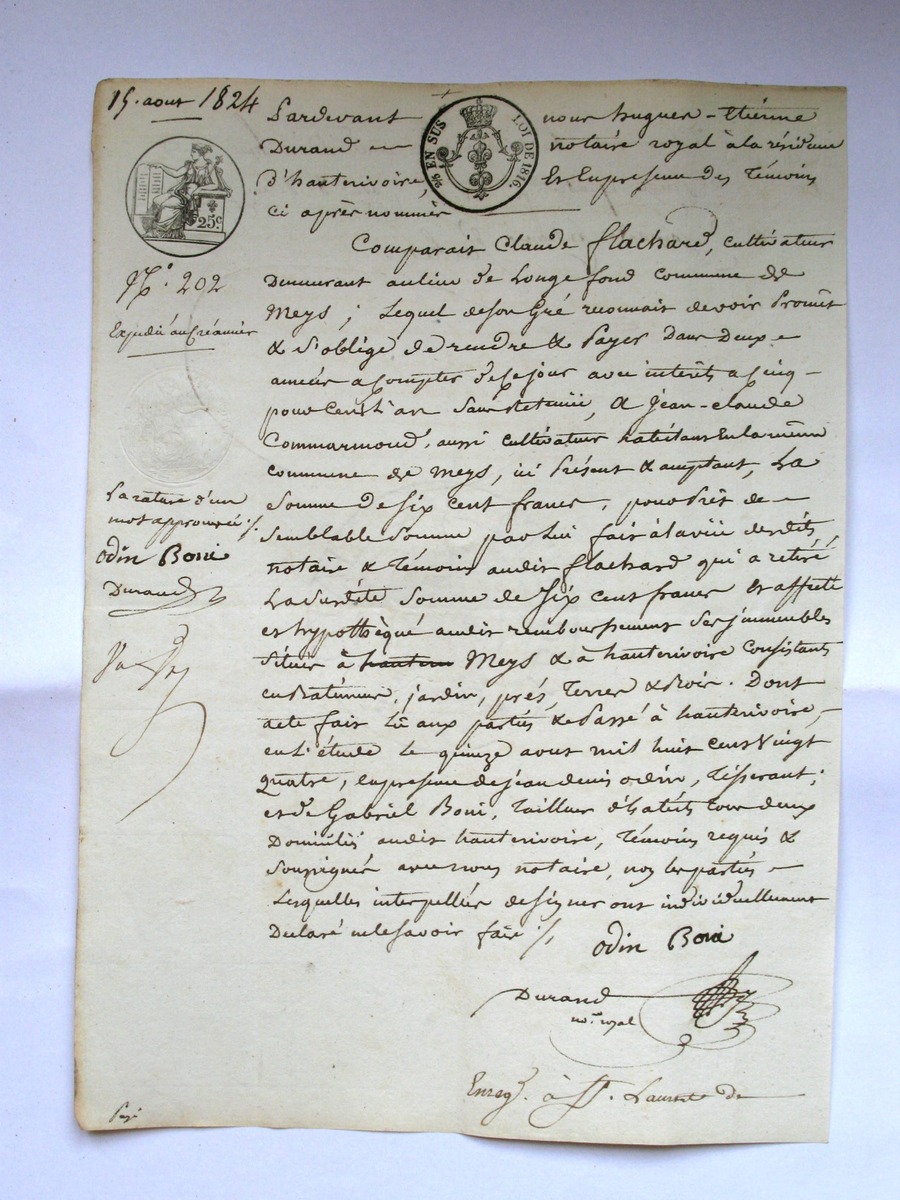 15. aout 1824
Pardevant nous hugues-étienne
Durand notaire royal à la résidence
D'hauterivoire, Et En presence des Témoins
ci après nommés
EN SUS LOI DE 1816
25c
No. 202
Expedié au Créancier
Comparait Claude flachard, cultivateur
Demeurant au lieu De Longe fond commune De
Meys ; Lequel de son Gré reconnait devoir Promet
& S'oblige De rendre & Payer Dans Deux
années a Compter De Ce jour avec intérets a Cinq
pour Cent L'an Sans Retenue, A jean-claude
Commarmond, aussi cultivateur habitant En la même
commune De Meys, ici Présent & acceptant, La
Somme De Six Cent francs, pour Prêt de
Semblable Somme par Lui fait à La vue desdits
notaire & Témoins audit flachard qui a retiré
La Susdite Somme de Six Cent francs Et affecté
et hypothèqué audit remboursement Ses jmmeubles
Situés à hauteri Meys & à hauterivoire Consistants
en Batiments, jardin, prés, Terres & Bois. Dont
acte fait Lû aux parties & Passé à hauterivoire,
en L'étude Le quinze aout mil huit Cent Vingt
Quatre, En presence de jean denis odin, Tisserant ;
et De Gabriel Boni, Tailleur d'habits tous deux
Domiciliés audit hauterivoire, Témoins requis &
Soussignés avec nous notaire, non Les parties
Lesquelles interpellées de signer ont individuellement
Declaré ne le Savoir faire ./.
La rature d'un
mot approuvée ./.
odin Boni
Durand
odin Boni
Durand
no.re royal
Enregé. à St. Laurent de
Payé